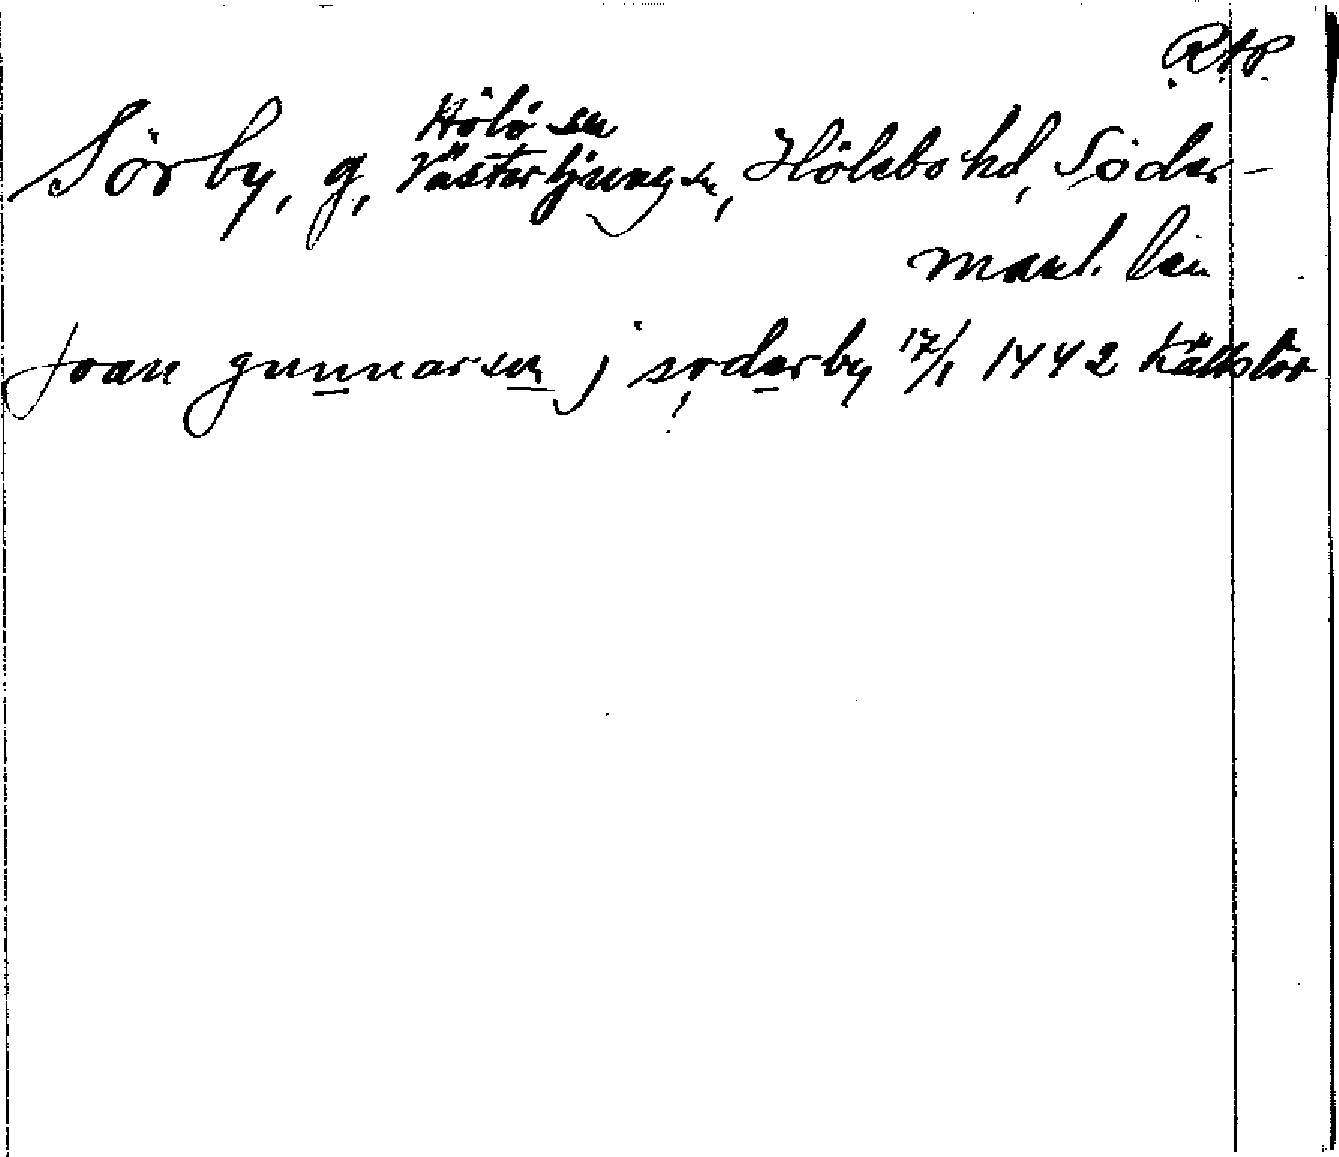 RAP.
Hölö sn
Sörby, g, Västerljung sn, Hölebo hd, Söder-
manl. län
Joan gunnarsen j søderby 17/1 1442 Källstör